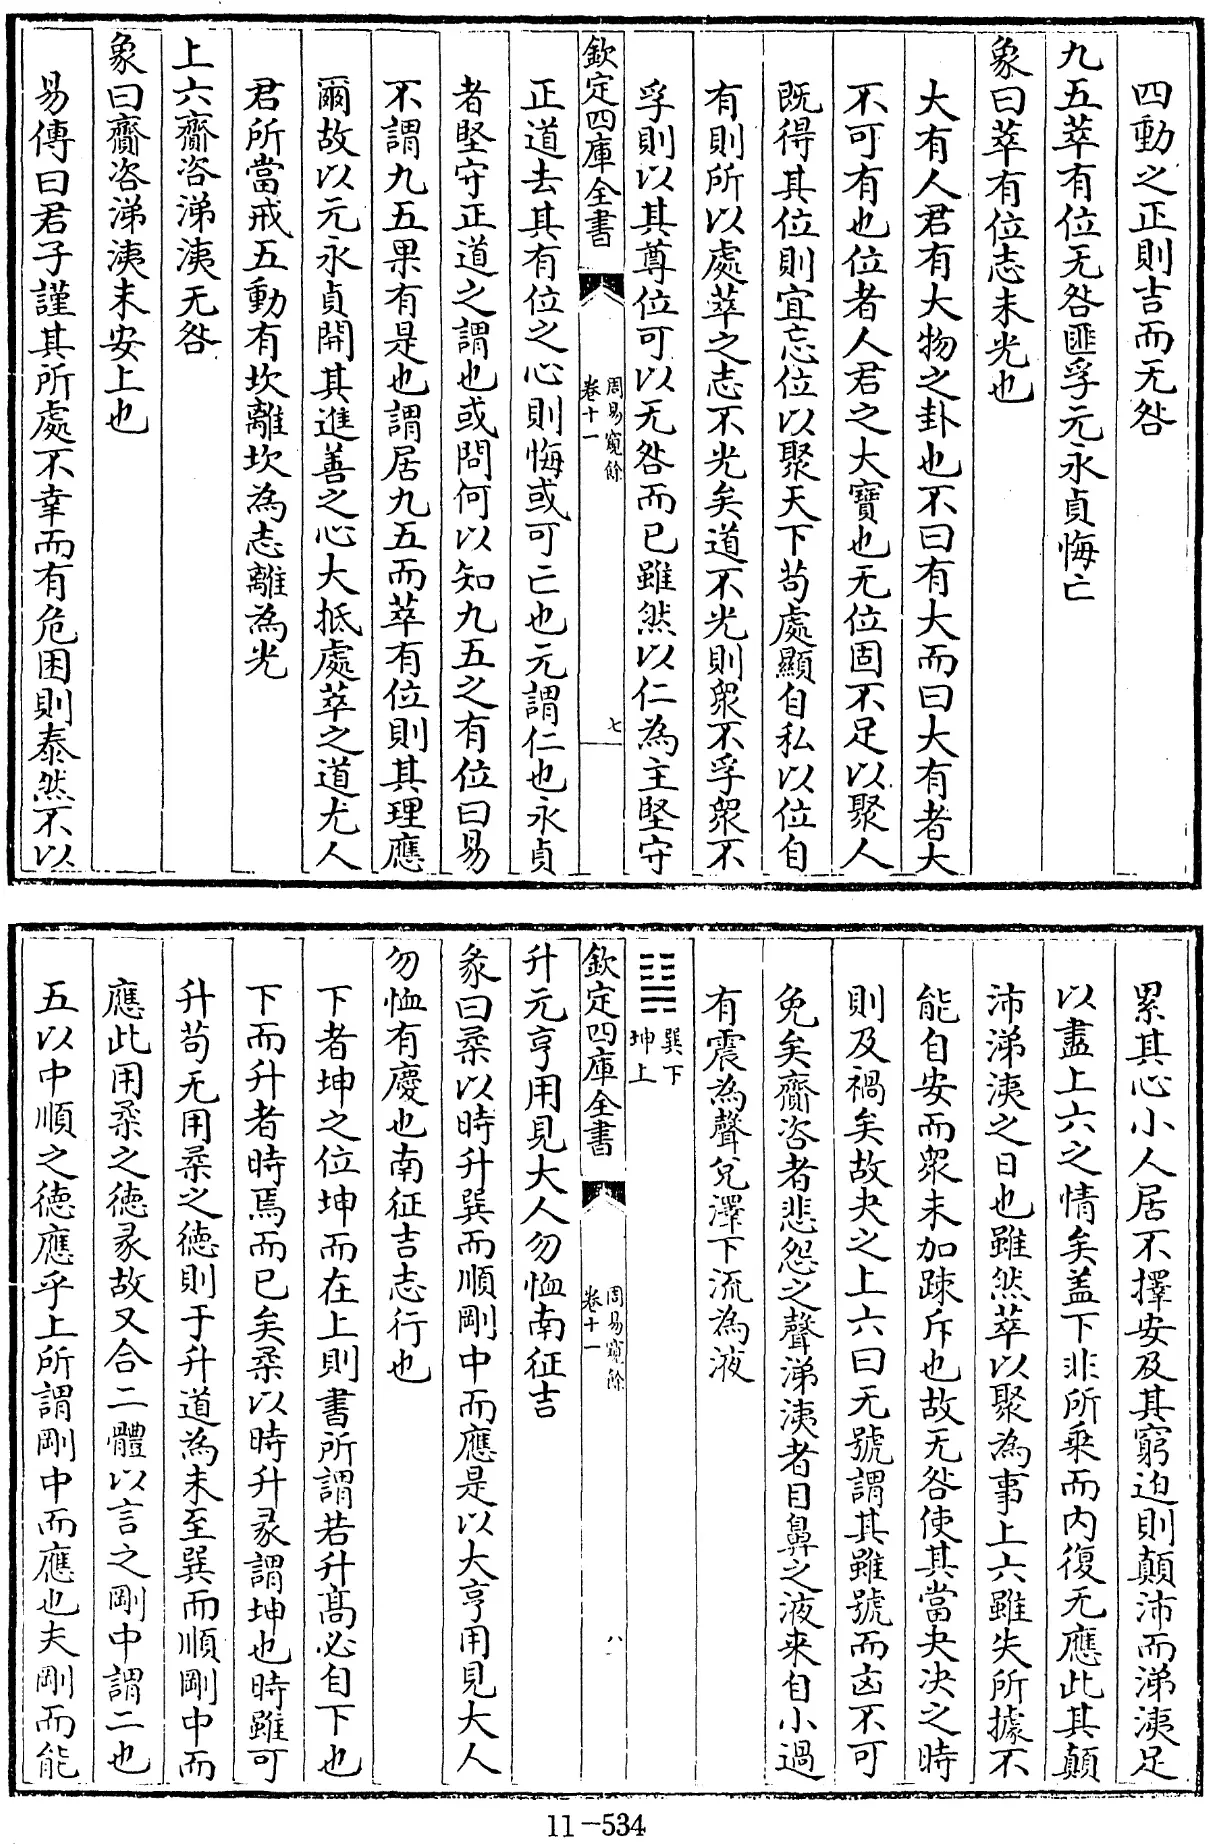 四動之正則吉而无咎
九五萃有位无咎匪孚元永貞悔亡
象曰萃有位志未光也
大有人君有大物之卦也不曰有大而曰大有者大
不可有也位者人君之大寶也无位固不足以聚人
既得其位則宜忘位以聚天下苟處顯自私以位自
有則所以處萃之志不光矣道不光則衆不孚衆不
孚則以其尊位可以无咎而已雖然以仁為主堅守
欽定四庫全書
周易窺餘
卷十一
七
正道去其有位之心則悔或可亡也元謂仁也永貞
者堅守正道之謂也或問何以知九五之有位曰易
不謂九五果有是也謂居九五而萃有位則其理應
爾故以元永貞開其進善之心大抵處萃之道尤人
君所當戒五動有坎離坎為志離為光
上六齎咨涕洟无咎
象曰齎咨涕洟未安上也
易傳曰君子謹其所處不幸而有危困則泰然不以
累其心小人居不擇安及其窮迫則顛沛而涕洟足
以盡上六之情矣盖下非所乘而内復无應此其顛
沛涕洟之日也雖然萃以聚為事上六雖失所據不
能自安而衆未加踈斥也故无咎使其當夬決之時
則及禍矣故夬之上六曰无號謂其雖號而凶不可
免矣齎咨者悲怨之聲涕洟者目鼻之液來自小過
有震為聲兌澤下流為液
䷭
巽下
坤上
欽定四庫全書
周易窺餘
卷十一
八
升元亨用見大人勿恤南征吉
彖曰柔以時升巽而順剛中而應是以大亨用見大人
勿恤有慶也南征吉志行也
下者坤之位坤而在上則書所謂若升髙必自下也
下而升者時焉而已矣柔以時升彖謂坤也時雖可
升苟无用柔之德則于升道為未至巽而順剛中而
應此用柔之德彖故又合二體以言之剛中謂二也
五以中順之德應乎上所謂剛中而應也夫剛而能
11-534